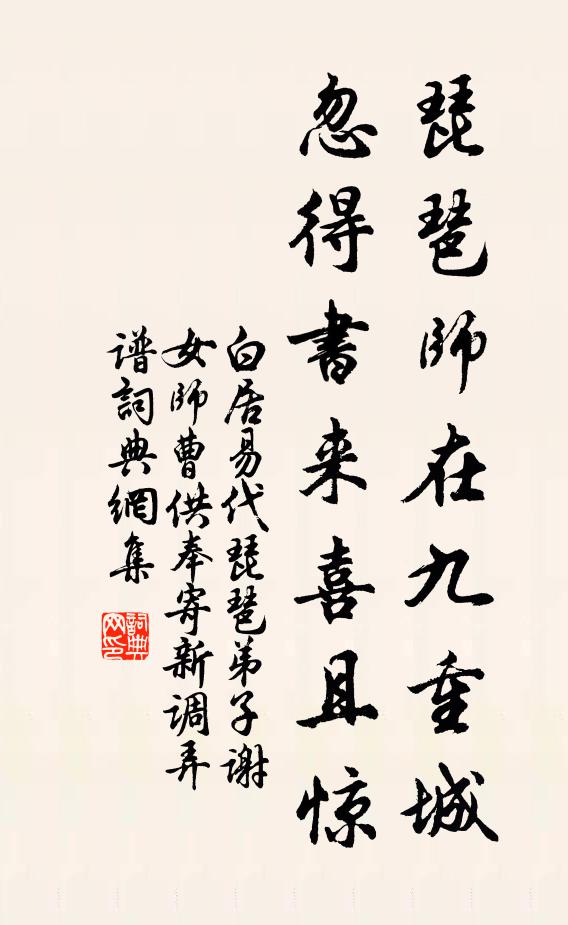 琵琶師在九重城
忽得書来喜且惊
白居易代琵琶弟子谢
女師曹供奉寄新调弄
谱詞典網集
詞典网印